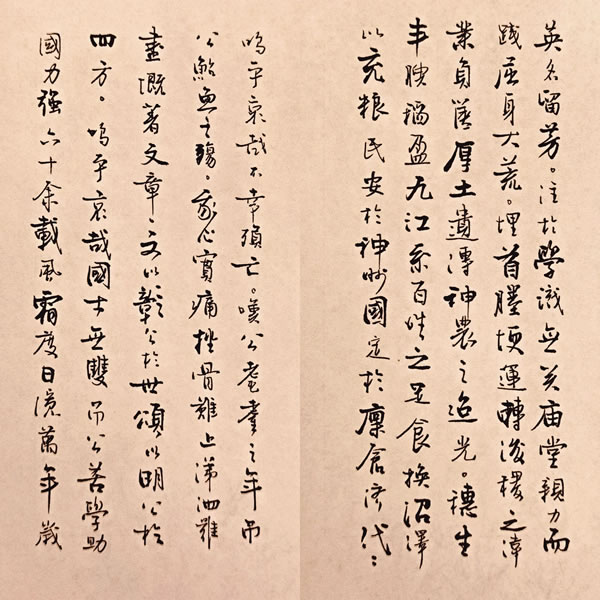 嗚乎哀哉不幸殞亡。嘆公耄耋之年吊
公鮐魚之殤。我心實痛挫骨難上涕泗難
盡慨著文章、文以彰公於世頌以明公於
四方。嗚乎哀哉國士無雙吊公善學助
國力強六十余載風霜度日億萬年歲
英名留芳。注於學識無关庙堂親力而
践屈身大荒。埋首塍埂運轉浚稷之
業負厚土遺澤神農之光。穗生
丰腴稻盈九江系百姓之足食換沼澤
以充粮民安於神州國定於廩倉济代々